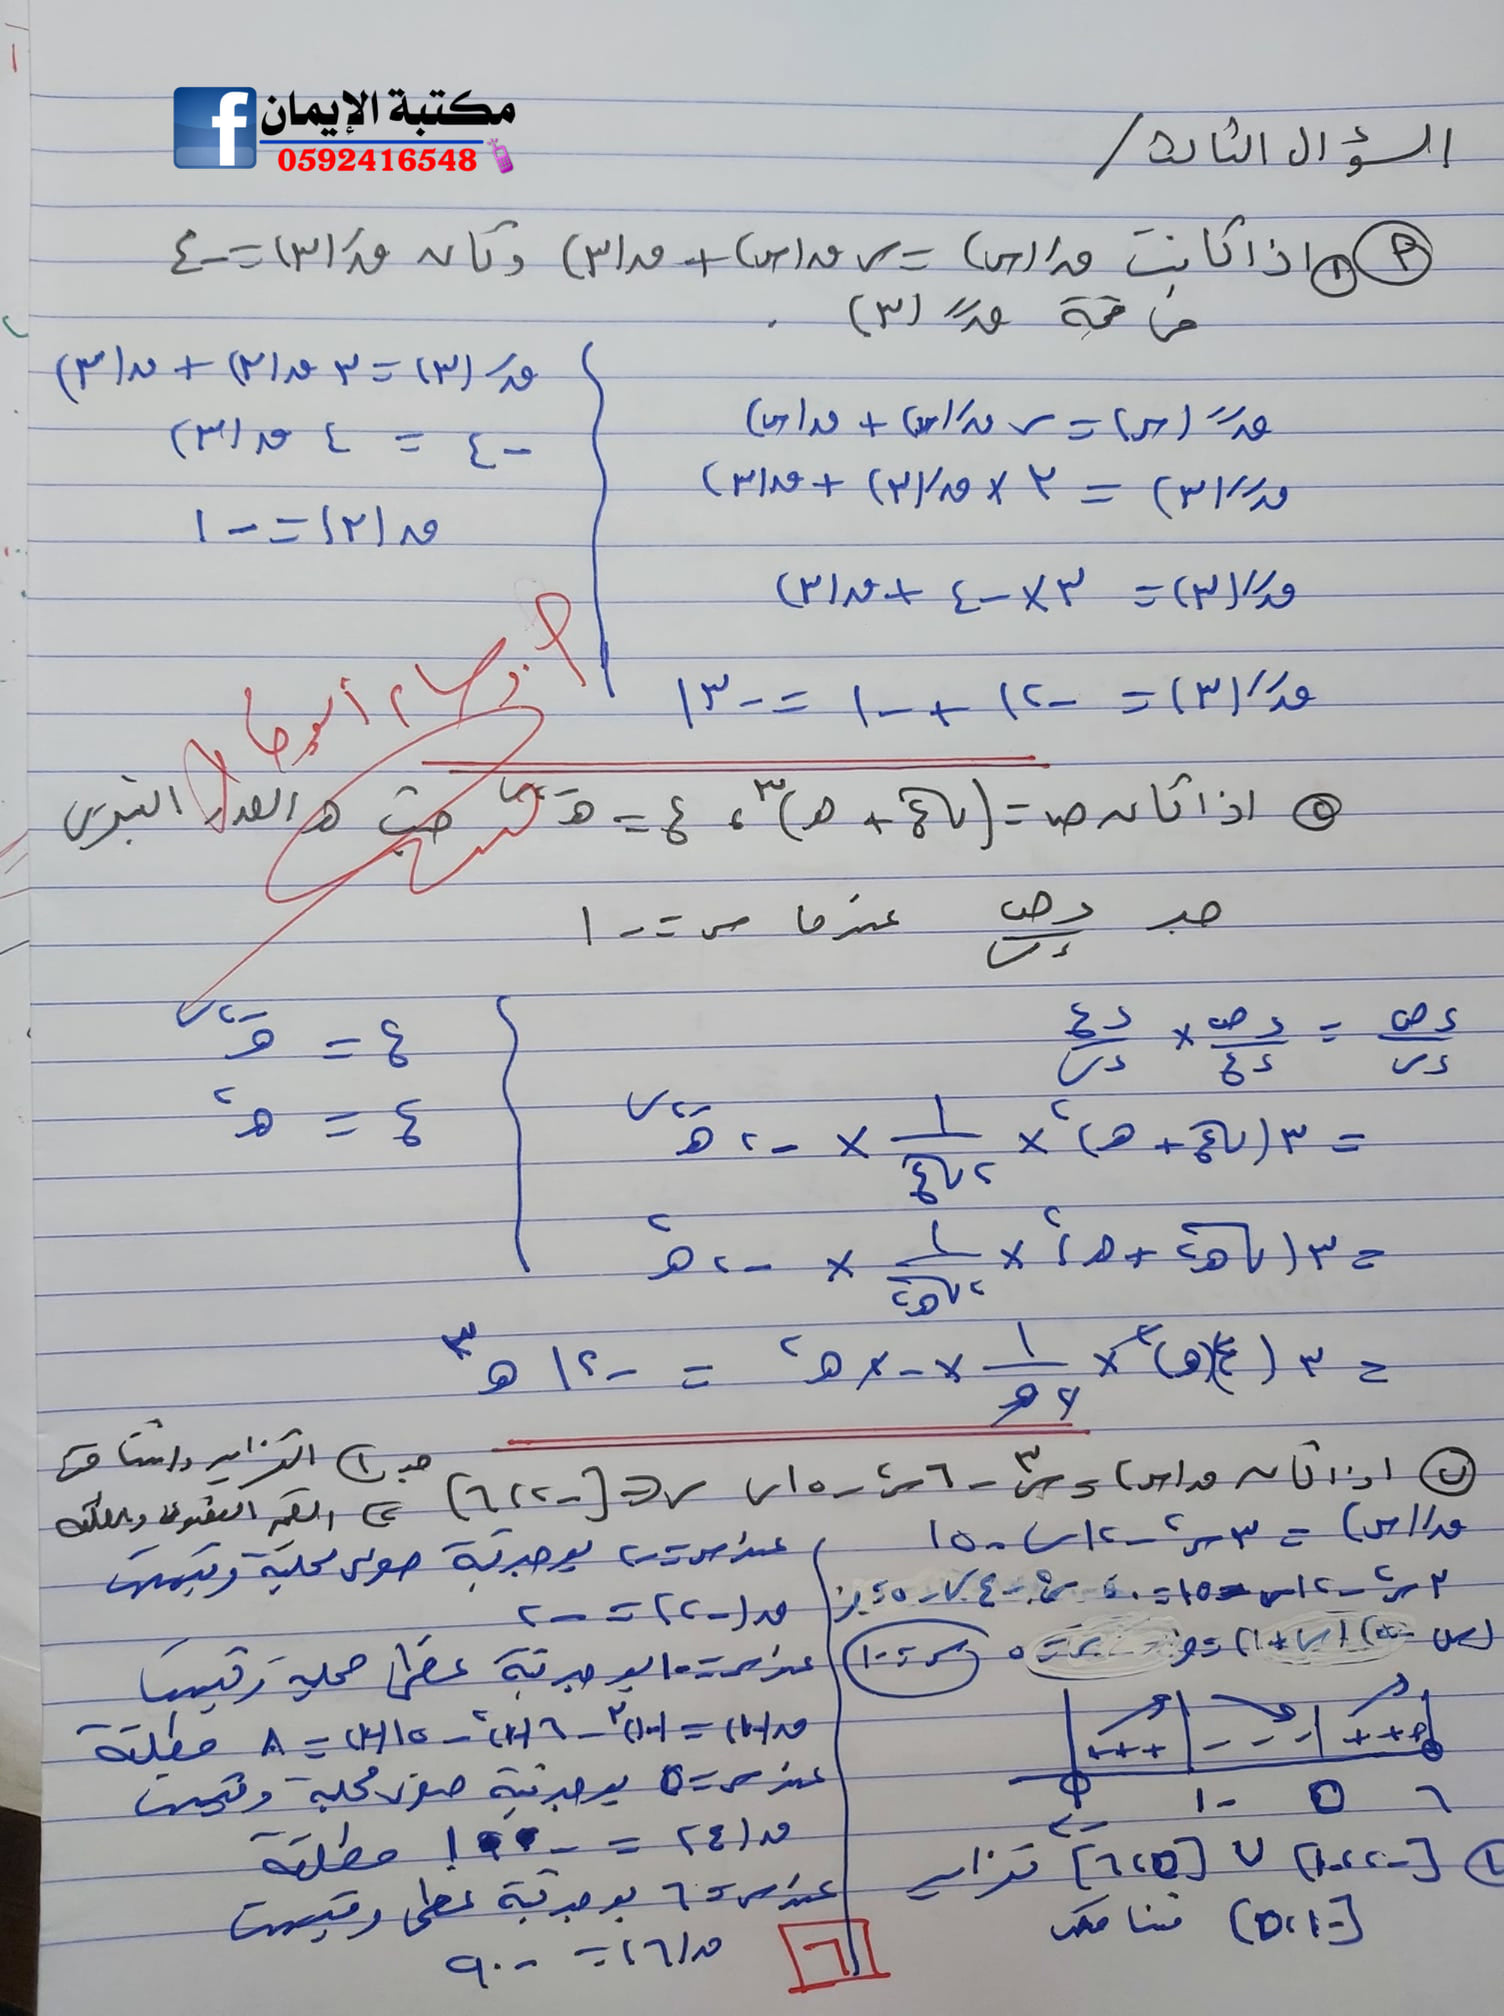 مكتبة الإيمان
0592416548
السؤال الثالث /
م ١ اذا كانت قَ(س) = س ق(س) + ق(٣) وكان قَ(٣) = -٤
قيمة قً(٣) .
قً(س) = س قَ(س) + ق(س)
قً(٣) = ٣ × قَ(٣) + ق(٣)
قً(٣) = ٣ × -٤ + ق(٣)
قً(٣) = -١٢ + -١ = -١٣
قَ(٣) = ٣ ق(٣) + ق(٣)
-٤ = ٤ ق(٣)
ق(٣) = -١
اذا كان ص = (√ع + هـ)^٣ ، ع = هـ^-٢س حيث هـ العدد النيبيري
جد دص/دس عندما س = -١
دص/دس = دص/دع × دع/دس
= ٣(√ع + هـ)^٢ × ١/٢√ع × -٢هـ^-٢س
= ٣(√هـ^٢ + هـ)^٢ × ١/٢√هـ^٢ × -٢هـ^٢
= ٣(٢هـ)^٢ × ١/٢هـ × -٢هـ^٢ = -١٢هـ^٣
ع = هـ^-٢س
ع = هـ^٢
ب اذا كان ق(س) = س^٣ - ٦س^٢ - ١٥س س ∈ [-٢،٦]
جد ١) التزايد والتناقص
٢) القيم القصوى والمطلقة
قَ(س) = ٣س^٢ - ١٢س - ١٥
٣س^٢ - ١٢س - ١٥ = ٠ س^٢ - ٤س - ٥ = ٠
(س - ٥)(س + ١) = ٠ س = ٥ س = -١
+++ - - - +++
-٢ -١ ٥ ٦
١ [-٢،-١] ∪ [٥،٦] تزايد
[-١،٥] تناقص
عند س = -٢ يوجد قيمة صغرى محلية وقيمتها
ق(-٢) = -٢
عند س = -١ يوجد قيمة عظمى محلية وقيمتها
ق(-١) = (-١)^٣ - ٦(-١)^٢ - ١٥(-١) = ٨ مطلقة
عند س = ٥ يوجد قيمة صغرى محلية وقيمتها
= -١٠٠ مطلقة
عند س = ٦ يوجد قيمة عظمى وقيمتها
ق(٦) = -٩٠
٦